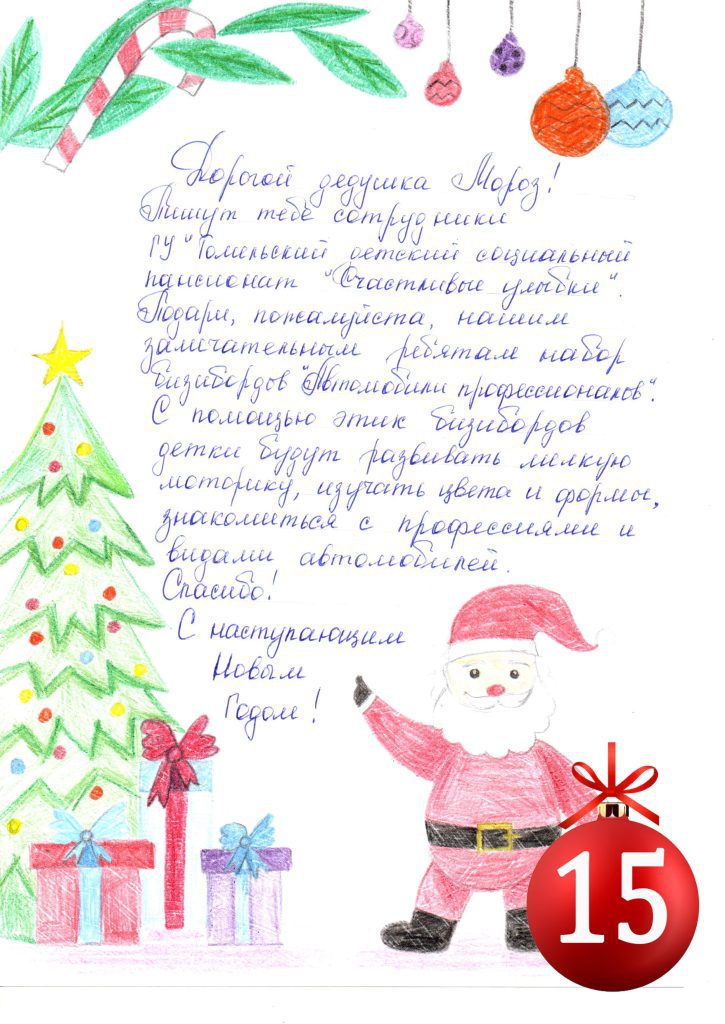 Дорогой дедушка Мороз!
Пишут тебе сотрудники
ГУ "Гомельский детский социальный
пансионат "Счастливые улыбки".
Подари, пожалуйста, нашим
замечательным ребятам набор
бизибордов "Автомобили профессионалов".
С помощью этих бизибордов
детки будут развивать мелкую
моторику, изучать цвета и формы,
знакомиться с профессиями и
видами автомобилей.
Спасибо!
С наступающим
Новым
Годом!
15